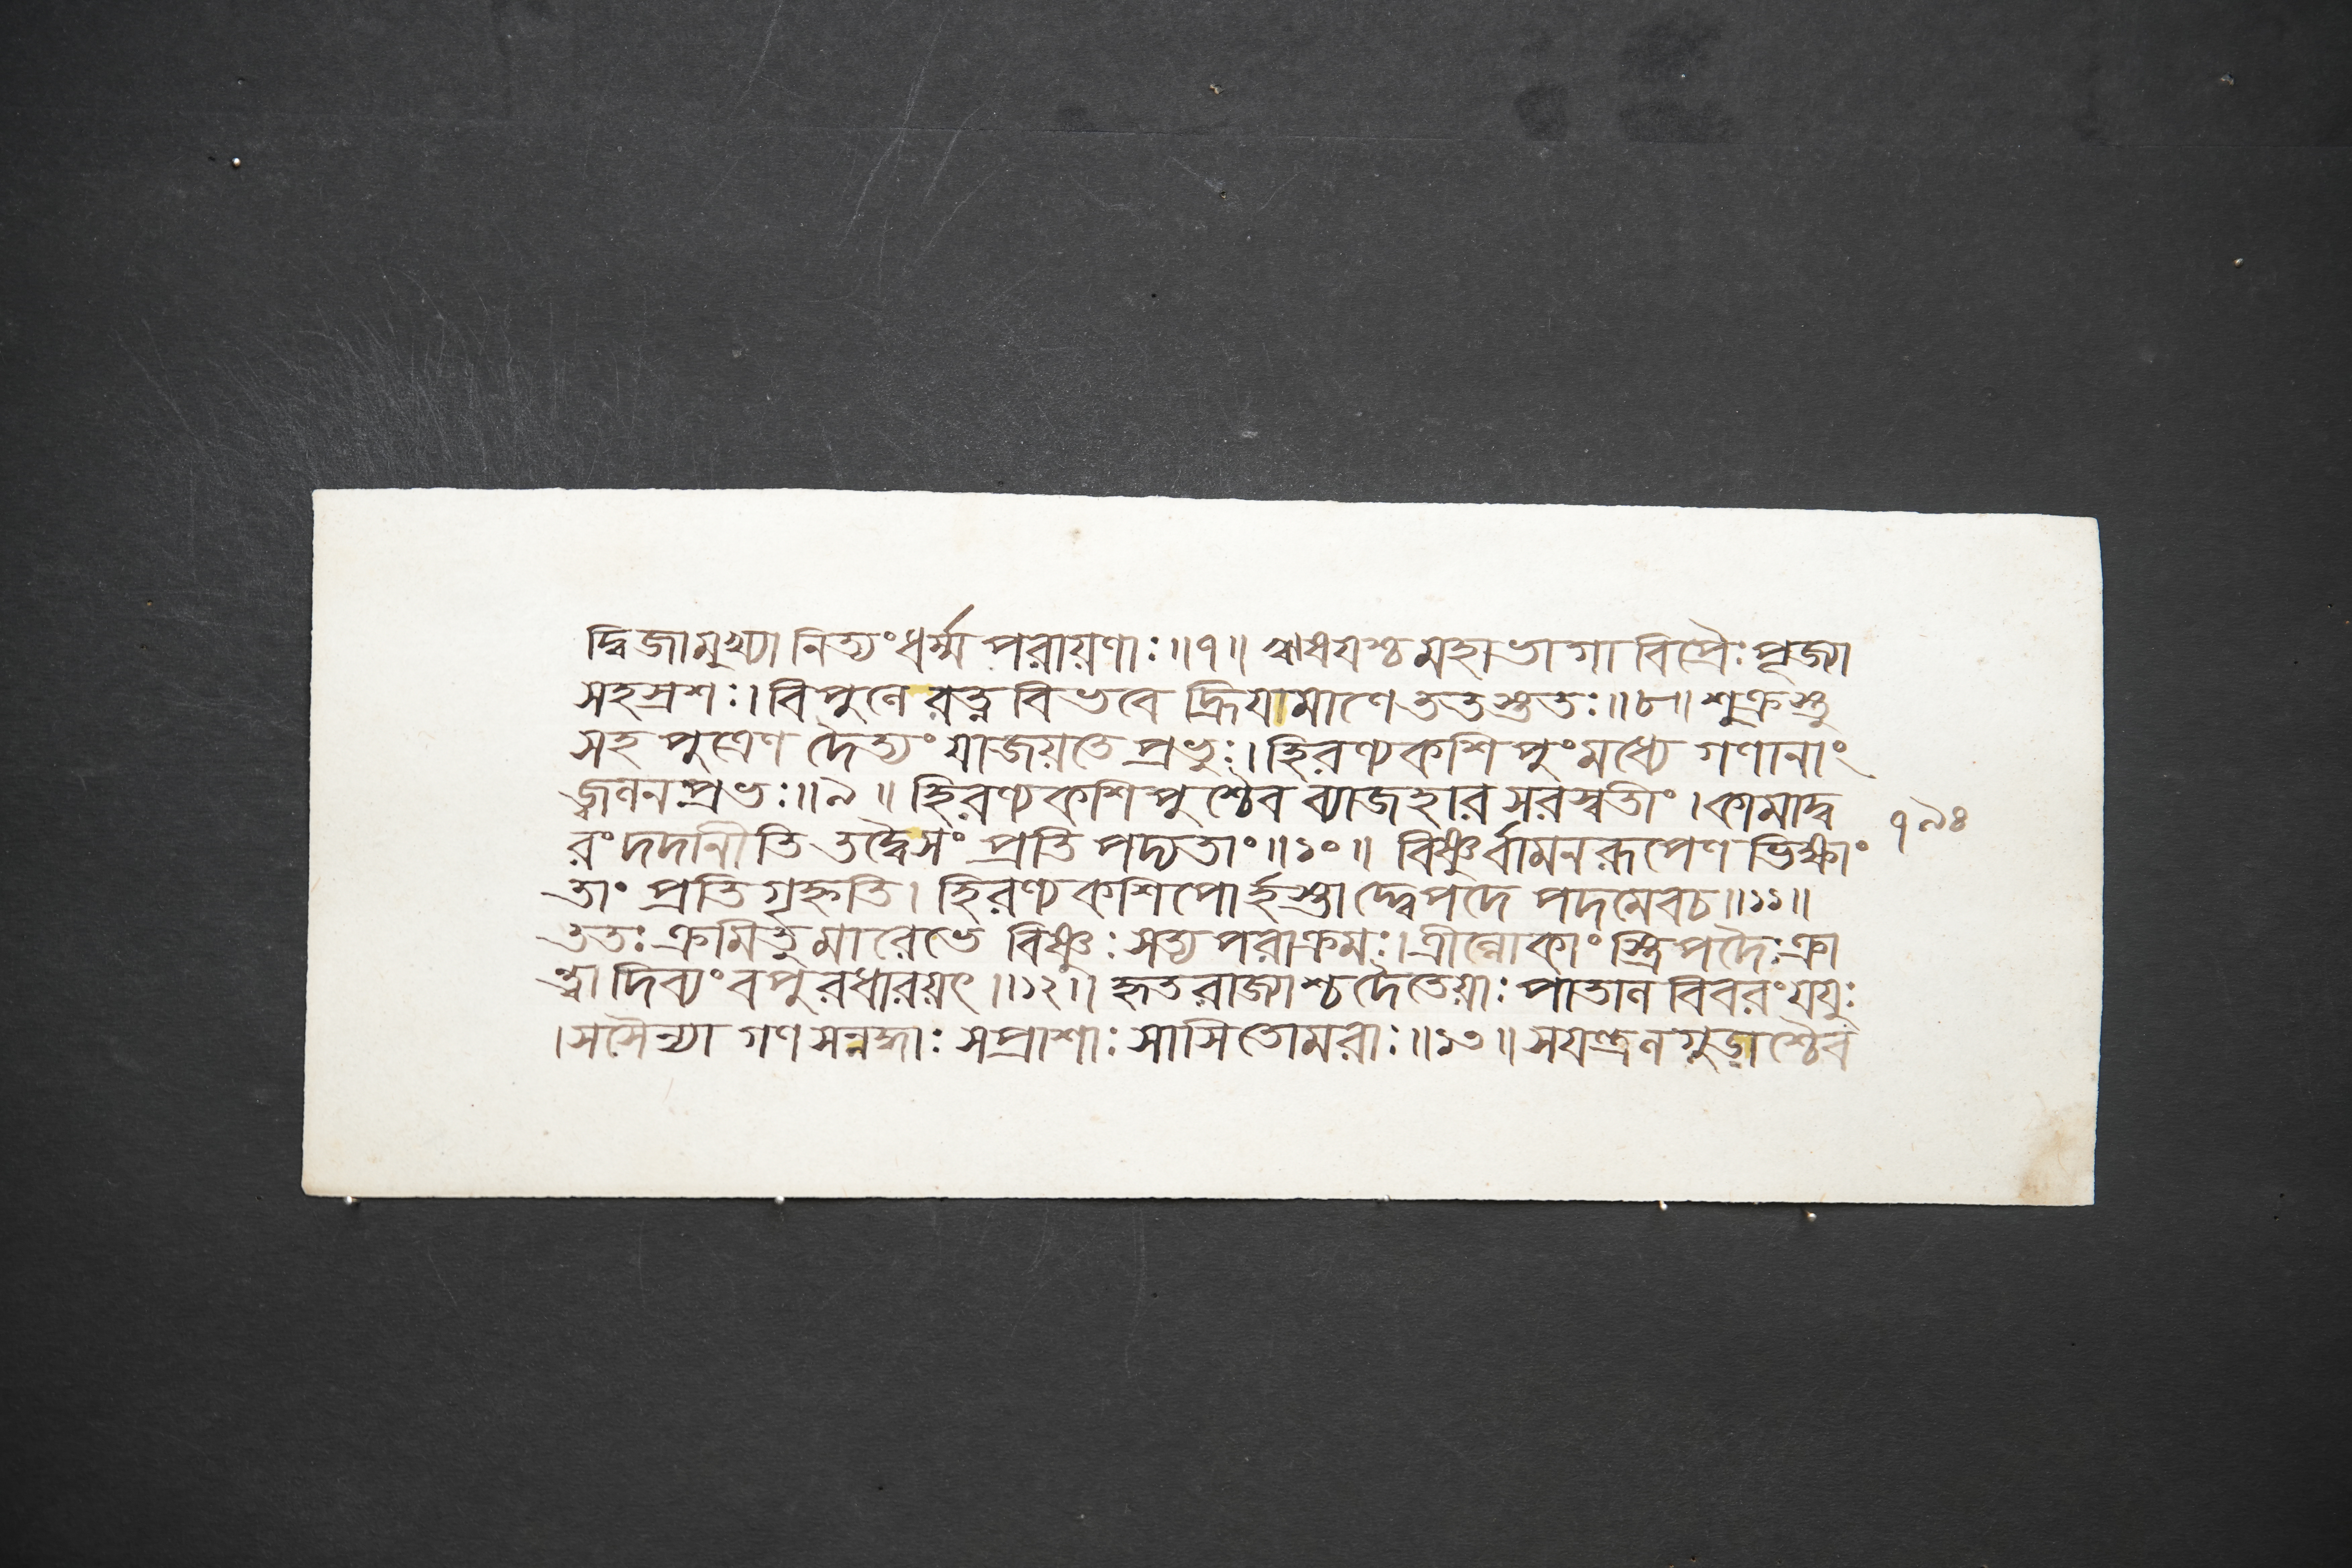 দ্বিজামুখ্যা নিত্যং ধর্ম্ম পরায়ণাঃ॥৭॥ ঋষযশ্চ মহাভাগা বিপ্রৈঃ পূজ্যা
সহস্রশঃ। বিপুলে রত্ন বিভবে দ্ধ্রিযামাণে ততস্ততঃ॥৮॥ শুক্রস্তু
সহ পুত্রেণ দৈত্যং যাজয়তে প্রভুঃ। হিরণ্যকশিপুং মধ্যে গণানাং
জ্বলন প্রভঃ॥৯॥ হিরণ্যকশিপুশ্চৈব ব্যাজহার সরস্বতীং। কামাদ্ব
রং দদানীতি তদ্বৈসং প্রতি পদ্যতাং॥১০॥ বিষ্ণুর্বামনরূপেণ ভিক্ষাং
তাং প্রতি গৃহ্নতি। হিরণ্যকশিপোর্হস্তাদ্দ্বেপদে পদমেবচ॥১১॥
ততঃ ক্রমিতুমারেভে বিষ্ণুঃ সত্যপরাক্রমঃ। ত্রীল্লোকাং স্ত্রিপদৈঃ ক্রা
ন্ত্বা দিব্যং বপুরধারয়ৎ॥১২॥ হৃতরাজ্যাশ্চ দৈতেয়াঃ পাতাল বিবরং যযুঃ
। সসৈন্যা গণ সন্নদ্ধাঃ সপ্রাশাঃ সাসিতোমরাঃ॥১৩॥ সযন্ত্রলগুড়াশ্চৈব
৭৯৪